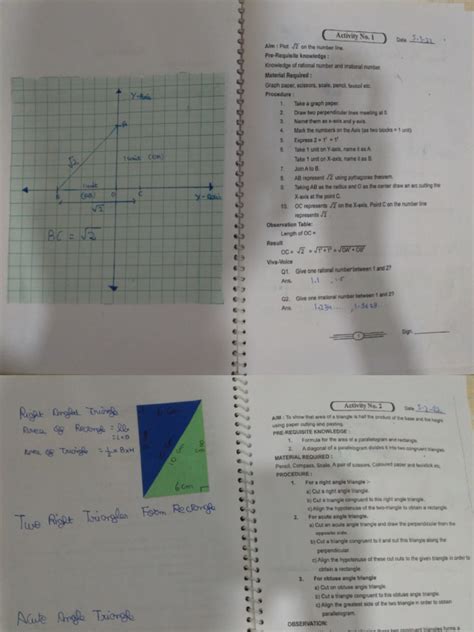 Y-axis
A
√2
1 unit (OA)
1 unit
(OB)
B
O
C
√2
BC = √2
Activity No. 1
Date
Aim : Plot √2 on the number line.
Pre-Requisite knowledge :
Knowledge of rational number and irrational number.
Material Required :
Graph paper, scissors, scale, pencil, fevicol etc.
Procedure :
1. Take a graph paper.
2. Draw two perpendicular lines meeting at 0.
3. Name them as x-axis and y-axis.
4. Mark the numbers on the Axis (as two blocks = 1 unit)
5. Express 2 = 1² + 1².
6. Take 1 unit on Y-axis, name it as A.
Take 1 unit on X-axis, name it as B.
7. Join A to B.
8. AB represent √2 using pythagoras theorem.
9. Taking AB as the radius and O as the center draw an arc cutting the
X-axis at the point C.
10. OC represents √2 on the X-axis. Point C on the number line
represents √2
Observation Table:
Length of OC =
Result
OC = √2 = √1²+1² = √OA²+OB²
Viva-Voice
Q1. Give one rational number between 1 and 2?
Ans. 1.1 , 1.5
Q2. Give one irrational number between 1 and 2?
Ans.
1
Sign.
Right Angled Triangle
Area of Rectangle = lb
Area of Triangle = ½ × B×H
6 cm
6 cm
Two Right Triangles Form Rectangle
Acute Angle Triangle
Activity No. 2
Date
AIM : To show that area of a triangle is half the product of the base and the height
using paper cutting and pasting.
PRE-REQUISITE KNOWLEDGE :
1. Formula for the area of a parallelogram and rectangle.
2. A diagonal of a parallelogram divides it into two congruent triangles.
MATERIAL REQUIRED :
Pencil, Compass, Scale, A pair of scissors, Coloured paper and fevistick etc.
PROCEDURE :
1. For a right angle triangle :-
a) Cut a right angled triangle.
b) Cut a triangle congruent to this right angle triangle.
c) Align the hypotenuse of the two triangle to obtain a rectangle.
2. For acute angle triangle.
a) Cut an acute angle triangle and draw the perpendicular from the
opposite side.
b) Cut a triangle congruent to it and cut this triangle along the
perpendicular.
c) Align the hypotenuse of these cut outs to the given triangle in order to
obtain a rectangle.
3. For obtuse angle triangle
a) Cut an obtuse angle triangle.
b) Cut a triangle congruent to this obtuse angle triangle.
c) Align the greatest side of the two triangle in order to obtain
parallelogram.
OBSERVATION :